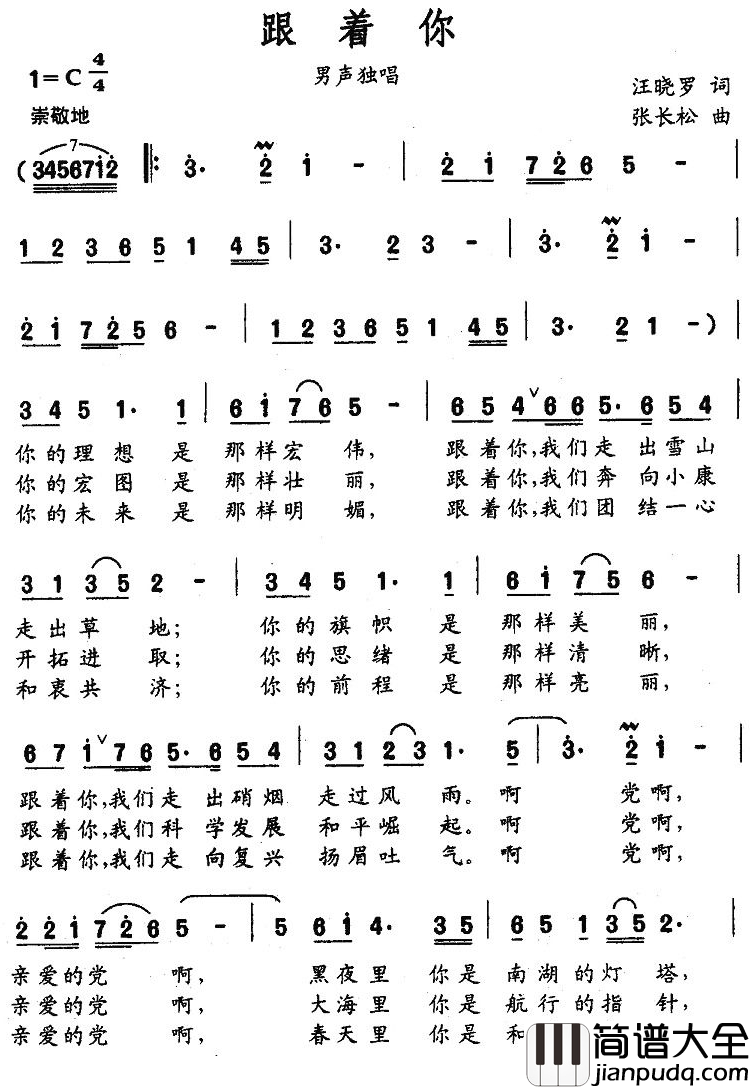 跟着你
1=C 4/4
男声独唱
汪晓罗 词
崇敬地
张长松 曲
(345671̇2̇ 7 𝄆 3̇· 2̇ 1̇ - | 2̇ 1̇ 7 2̇ 6 5 - |
1 2 3 6 5 1 4 5 | 3· 2 3 - | 3̇· 2̇ 1̇ - |
2̇ 1̇ 7 2̇ 5 6 - | 1 2 3 6 5 1 4 5 | 3· 2 1 - )
3 4 5 1· 1 | 6 1̇ 7 6 5 - | 6 5 4 ∨ 6 6 5· 6 5 4 |
你的理想是那样宏伟, 跟着你,我们走出雪山
你的宏图是那样壮丽, 跟着你,我们奔向小康
你的未来是那样明媚, 跟着你,我们团结一心
3 1 3 5 2 - | 3 4 5 1· 1 | 6 1̇ 7 5 6 - |
走出草地; 你的旗帜是那样美丽,
开拓进取; 你的思绪是那样清晰,
和衷共济; 你的前程是那样亮丽,
6 7 1̇ ∨ 7 6 5· 6 5 4 | 3 1 2 3 1· 5 | 3̇· 2̇ 1̇ - |
跟着你,我们走出硝烟走过风雨。啊 党啊,
跟着你,我们科学发展和平崛起。啊 党啊,
跟着你,我们走向复兴扬眉吐气。啊 党啊,
2̇ 2̇ 1̇ 7 2̇ 6 5 - | 5 6 1̇ 4· 3 5 | 6 5 1 3 5 2· |
亲爱的党啊, 黑夜里你是南湖的灯塔,
亲爱的党啊, 大海里你是航行的指针,
亲爱的党啊, 春天里你是和
简谱大全
jianpudq.com